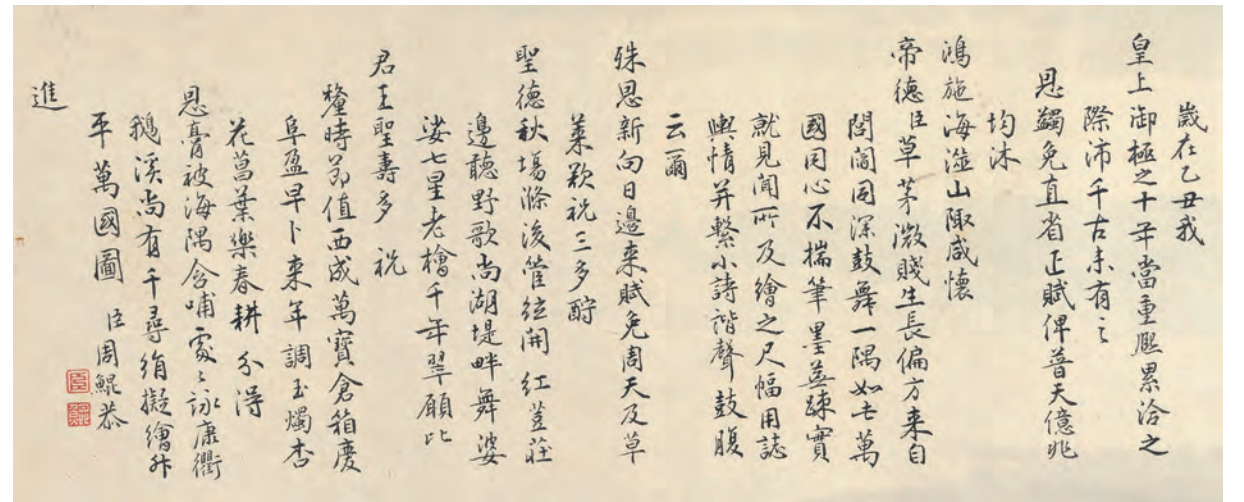 歲在乙丑我
皇上御極之十年當重熈累洽之
際沛千古未有之
恩蠲免直省正賦俾普天億兆
均沐
鴻施海澨山陬咸懷
帝德臣草茅微賤生長偏方来自
閭閻固深鼓舞一隅如是萬
國同心不揣筆墨蕪踈實
就見聞所及繪之尺幅用誌
輿情并繫小詩諧聲鼓腹
云爾
殊恩新向日邊来賦免周天及草
萊歡祝三多酧
聖德秋場滌後管絃開 紅荳莊
邊聽野歌尚湖堤畔舞婆
娑七星老檜千年翠願比
君王聖壽多 祝
釐時莭值西成萬寶倉箱慶
阜盈早卜来年調玉燭杏
花菖葉樂春耕 分得
恩膏被海隅含哺處〻詠康衢
鵝溪尚有千尋絹擬繪昇
平萬國圖 臣周鯤恭
進
臣
鯤